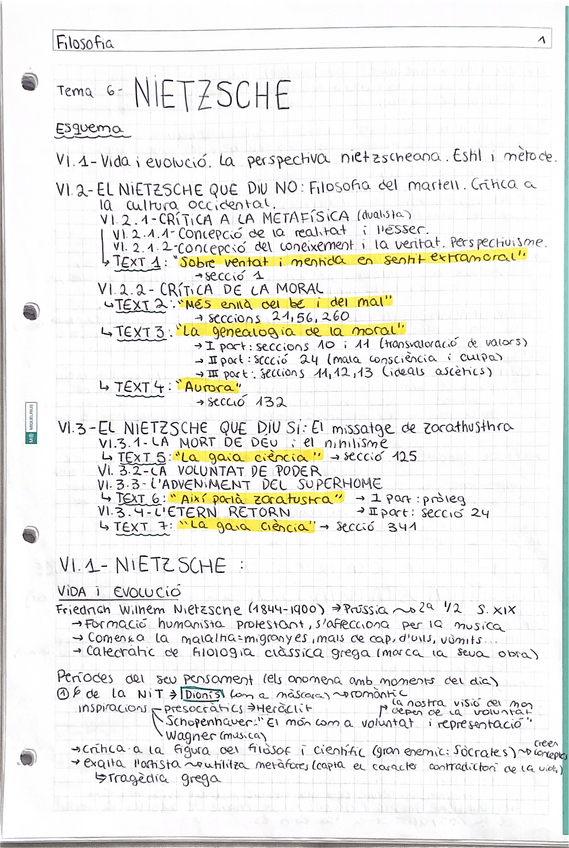 Filosofia 1
Tema 6- NIETZSCHE
Esquema
VI.1-Vida i evolució. La perspectiva nietzscheana. Estil i mètode.
VI.2-EL NIETZSCHE QUE DIU NO: Filosofia del martell. Crítica a
la cultura occidental.
VI.2.1-CRÍTICA A LA METAFÍSICA (dualista)
VI.2.1.1-Concepció de la realitat i l'ésser.
VI.2.1.2-Concepció del coneixement i la veritat. Perspectivisme.
↳ TEXT 1: "Sobre veritat i mentida en sentit extramoral"
→ secció 1
VI.2.2- CRÍTICA DE LA MORAL
↳ TEXT 2: "Més enllà del bé i del mal"
→ seccions 21,56,260
↳ TEXT 3: "La genealogia de la moral"
→ I part: seccions 10 i 11 (transvaloració de valors)
→ II part: secció 24 (mala consciència i culpa)
→ III part: seccions 11,12,13 (ideals ascètics)
↳ TEXT 4: "Aurora"
→ secció 132
VI.3-EL NIETZSCHE QUE DIU SI: El missatge de zarathusthra
VI.3.1-LA MORT DE DÉU i el nihilisme
↳ TEXT 5: "La gaia ciència" → secció 125
VI.3.2-LA VOLUNTAT DE PODER
VI.3.3-L'ADVENIMENT DEL SUPERHOME
↳ TEXT 6: "Així parlà zaratustra" → I part: pròleg
VI.3.4-L'ETERN RETORN → II part: secció 24
↳ TEXT 7: "La gaia ciència" → secció 341
VI.1- NIETZSCHE :
VIDA I EVOLUCIÓ
Friedrich Wilhem Nietzsche (1844-1900) → Prússia ~> 2a 1/2 S. XIX
→ Formació humanista protestant, s'afecciona per la musica
→ Comença la malaltia-migranyes, mals de cap, d'ulls, vòmits...
→ Catedràtic de filologia clàssica grega (marca la seva obra)
Períodes del seu pensament (els anomena amb moments del dia)
① P de la NIT → Dionís (com a màscara) ~> romàntic
inspiracions presocràtics → Heràclit la nostra visió del mon
depèn de la voluntat
Schopenhauer: "El món com a voluntat i representació"
Wagner (musica)
→ crítica a la figura del filòsof i científic (gran enemic: Sòcrates) ~> creen conceptes
→ exalta l'artista ~> utilitza metàfores (capta el caràcter contradictori de la vida)
↳ Tragèdia grega